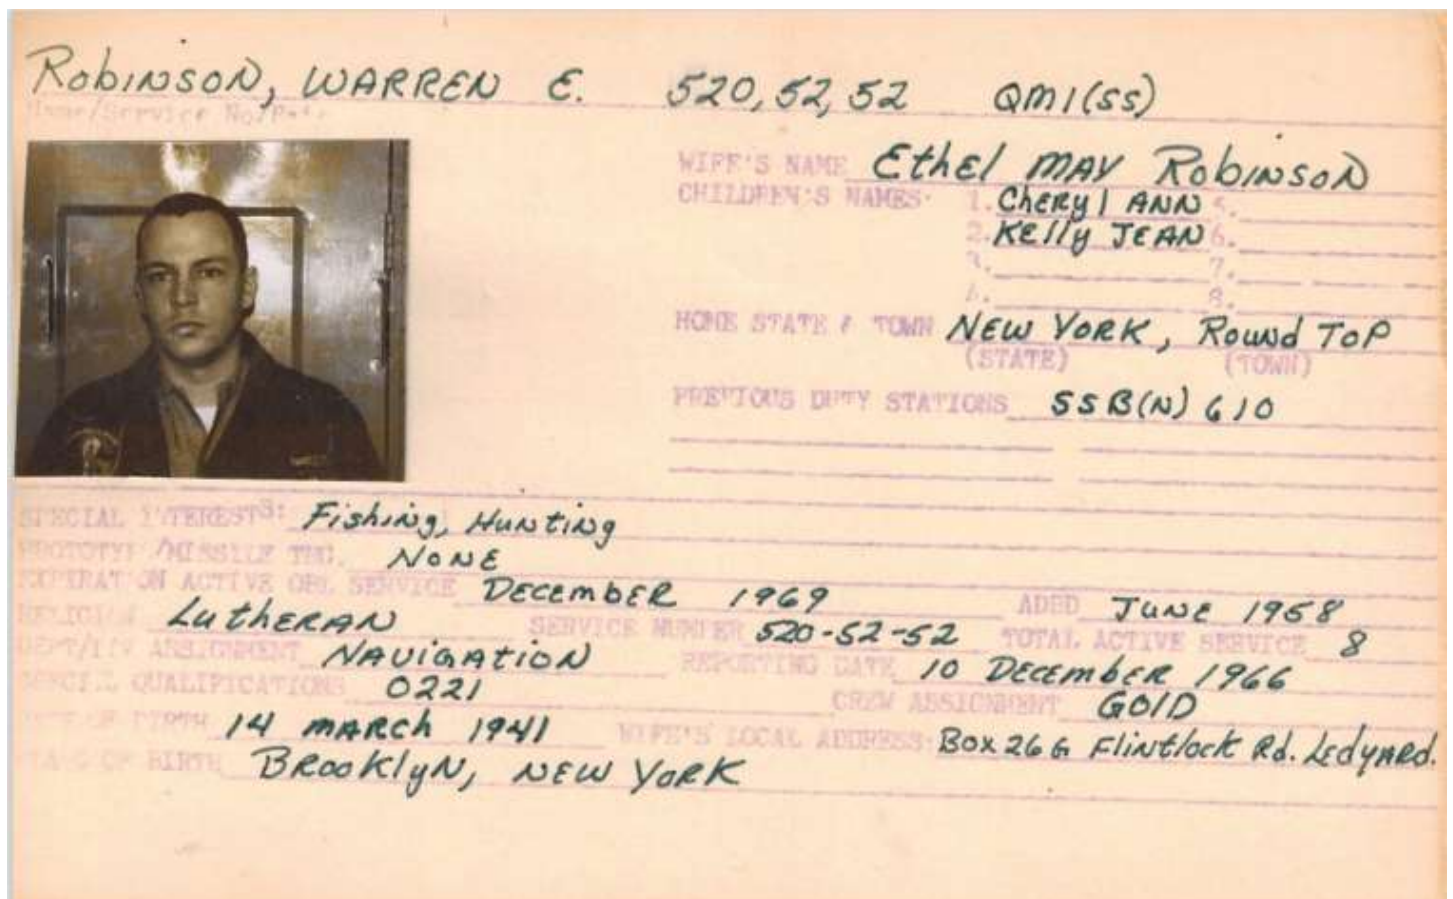 Robinson, WARREN E. 520,52,52 QM1(SS)
Name/Service No/Rate
WIFE'S NAME Ethel MAY Robinson
CHILDREN'S NAMES: 1. Cheryl ANN 5.
2. Kelly JEAN 6.
3. 7.
4. 8.
HOME STATE & TOWN NEW YORK, Round Top
(STATE) (TOWN)
PREVIOUS DUTY STATIONS SSB(N) 610
SPECIAL INTERESTS: Fishing, Hunting
PROTOTYPE/MISSILE TNG. NONE
EXPIRATION ACTIVE OBL SERVICE DECEMBER 1969 ADBD JUNE 1958
RELIGION LutHERAN SERVICE NUMBER 520-52-52 TOTAL ACTIVE SERVICE 8
DEPT/DIV ASSIGNMENT NAVIGATION REPORTING DATE 10 DECEMBER 1966
SPECIAL QUALIFICATIONS 0221 CREW ASSIGNMENT GOLD
DATE OF BIRTH 14 MARCH 1941 WIFE'S LOCAL ADDRESS: Box 26G Flintlock Rd. Ledyard.
PLACE OF BIRTH BROOKLYN, NEW YORK